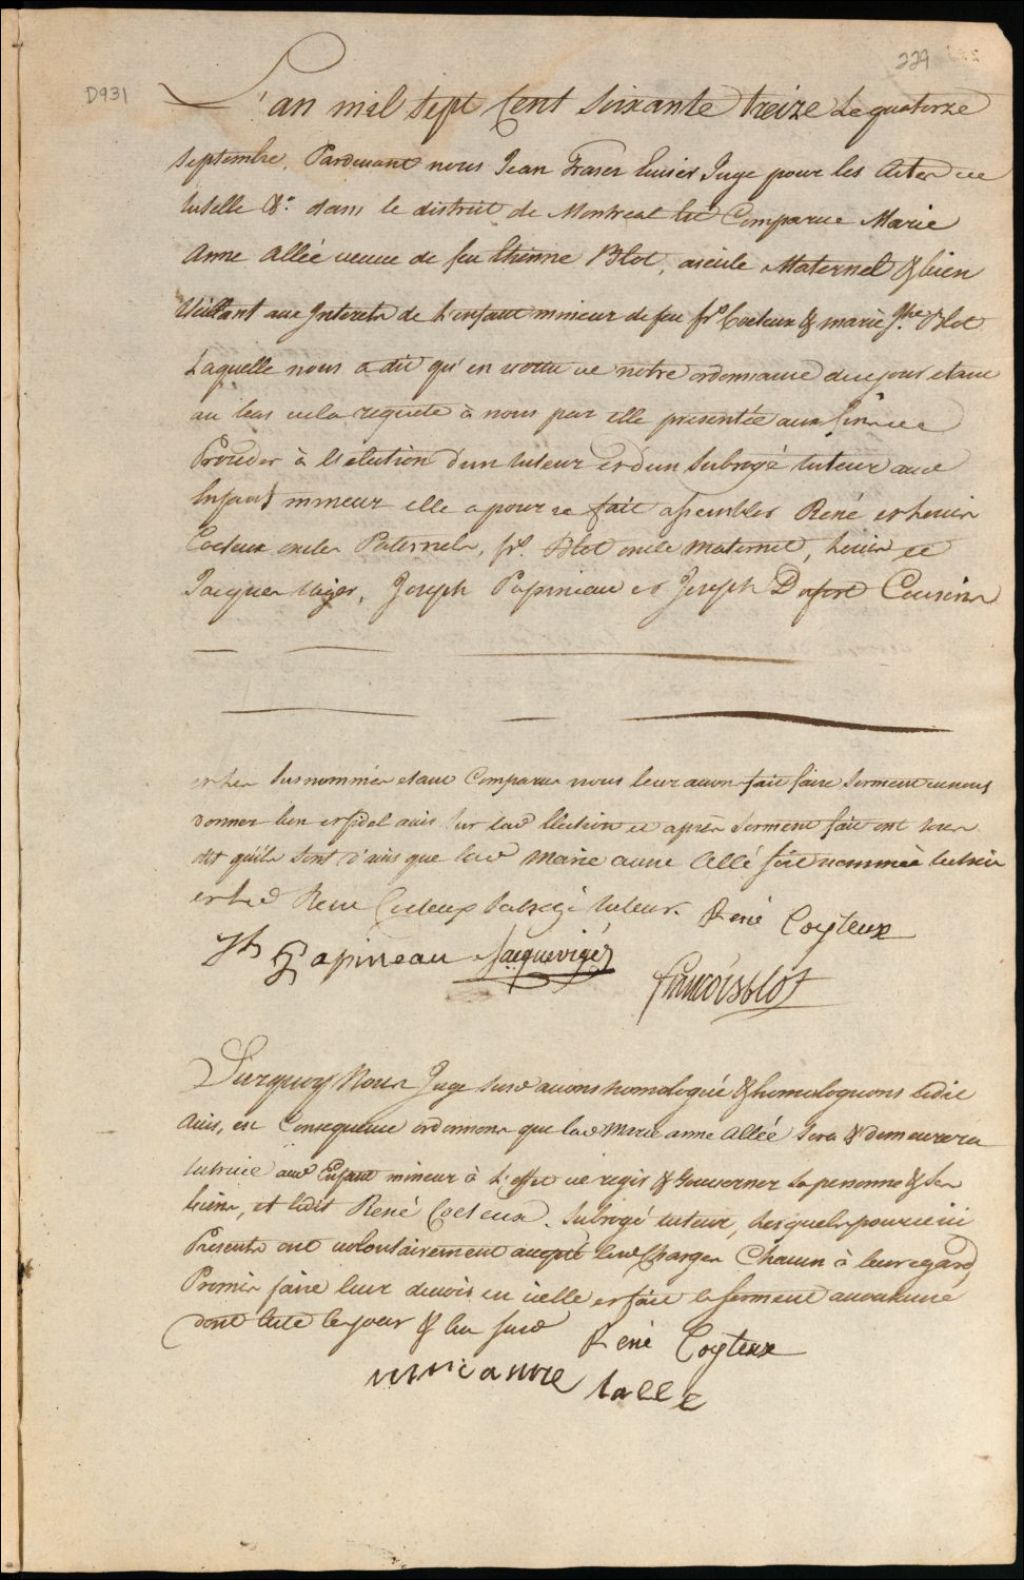 229
D931
L'an mil sept Cent Soixante treize Le quatorze
Septembre, Pardevant nous Jean Fraser Ecuier Juge pour les Actes de
tutelle &c. dans le district de Montreal est Comparue Marie
Anne Allée veuve de feu Etienne Blot, aieule Maternel & bien
Veillant aux Interets de L'enfant mineur de feu fr.s Coeteux & marie Jhe Blot
Laquelle nous a dit qu'en vertu de notre ordonnance de ce jour etant
au bas de la requete à nous par elle presentée aux fins de
Proceder à l'Election d'un tuteur et d'un Subrogé tuteur aud
Enfant mineur elle a pour ce fait assembler René et Louis
Coeteux oncles Paternels, fr.s Blot oncle maternel, Louis et
Jacques Viger, Joseph Papineau et Joseph Dufort Cousins
et les Susnommés etant Comparus nous leur avons fait faire Serment de nous
donner bon et fidel avis Sur lad Election et après Serment fait ont tous
dit qu'ils Sont d'avis que lad Marie anne Allé soit nommée tutrice
et led René Coeteux Subrogé tuteur. René Coyteux
Jh Papineau Jacque viger
francois blot
Surquoy Nous Juge Susd avons homologué & homologuons ledit
Avis, en Consequence ordonnons que lad Marie anne Allée Sera & demeurera
tutrice aud Enfant mineur à L'effet de regir & Gouverner Sa personne & Ses
biens, et ledit René Coeteux Subrogé tuteur, Lesquels pour ce ici
Presents ont volontairement accepté lesd Charges Chacun à leur egard,
Promis faire leur devoir en icelle et fait le serment accoutumé
dont acte les jour & an susd René Coyteux
marie anne lalle